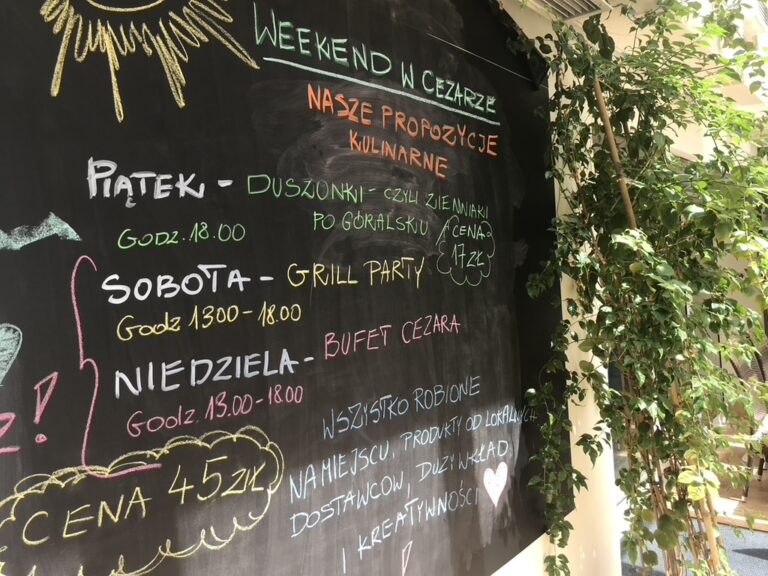 WEEKEND W CEZARZE
NASZE PROPOZYCJE
KULINARNE
PIĄTEK - DUSZONKI - CZYLI ZIEMNIAKI
PO GÓRALSKU
GODZ. 18.00
CENA
17 ZŁ
SOBOTA - GRILL PARTY
Godz 13 00 - 18.00
NIEDZIELA - BUFET CEZARA
Godz. 13.00 - 18.00
CENA 45 ZŁ
WSZYSTKO ROBIONE
NA MIEJSCU, PRODUKTY OD LOKALNYCH
DOSTAWCÓW, DUŻY WKŁAD
I KREATYWNOŚCI